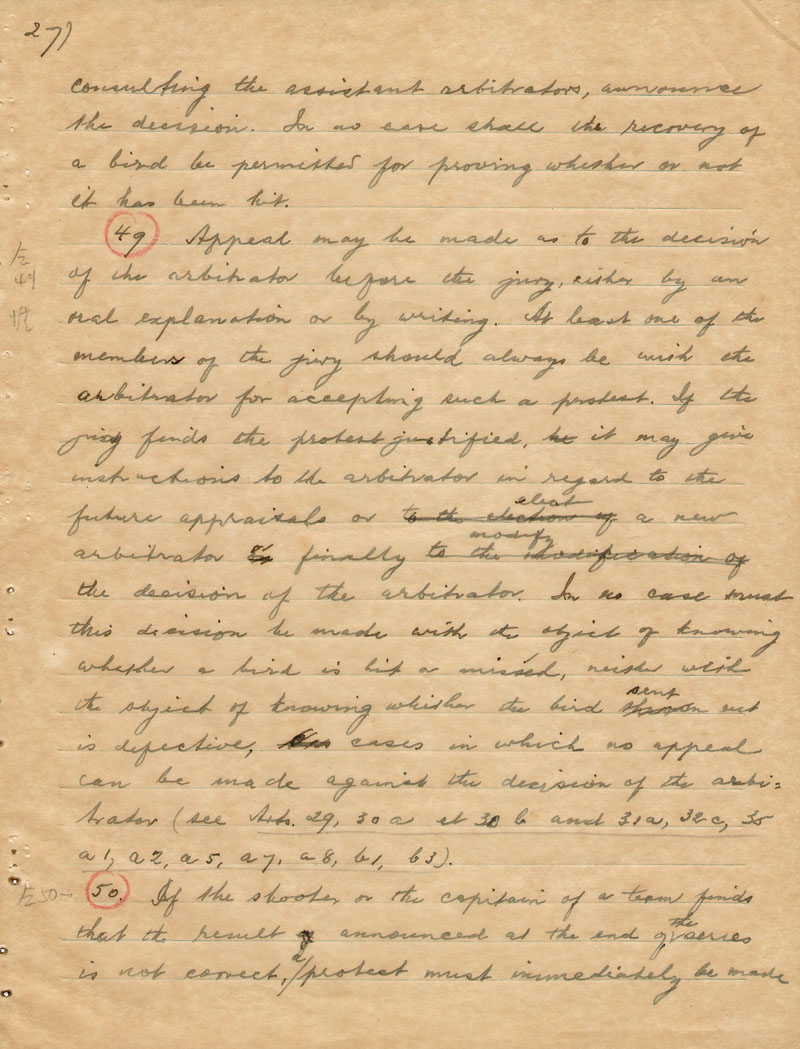 27)
consulting the assistant arbitrators, announce
the decision. In no case shall the recovery of
a bird be permitted for proving whether or not
it has been hit.
49 Appeal may be made as to the decision
of the arbitrator before the jury, either by an
oral explanation or by writing. At least one of the
members of the jury should always be with the
arbitrator for accepting such a protest. If the
jury finds the protest justified, it may give
instructions to the arbitrator in regard to the
elect
future appraisals or to the election of a new
modify
arbitrator or finally to the modification of
the decision of the arbitrator. In no case must
this decision be made with the object of knowing
whether a bird is hit or missed, neither with
sent
the object of knowing whether the bird out
is defective, cases in which no appeal
can be made against the decision of the arbi=
trator (see Arts. 29, 30 a et 30 b and 31a, 32c, 35
a1, a2, a5, a7, a8, b1, b3).
50. If the shooter or the capitain of a team finds
the
that the result announced at the end of series
a
is not correct, protest must immediately be made